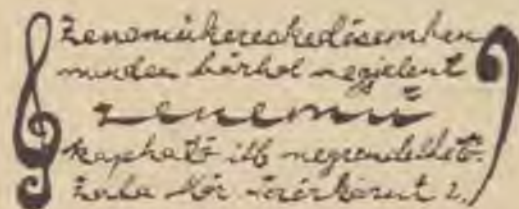 Zeneműkereskedésemben
minden bárhol megjelent
zenemű
kapható ill. megrendelhető.
Zala Mór Teréz körut 2.